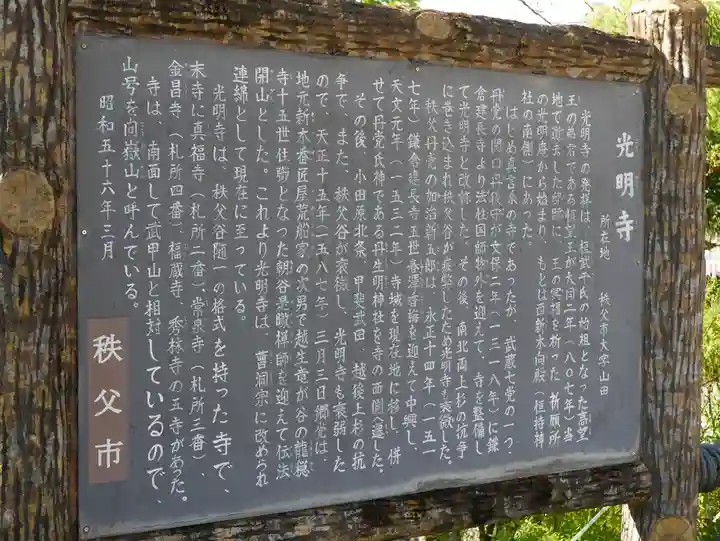 光明寺
所在地 秩父市大字山田
光明寺の発祥は、桓武平氏の始祖となった高望
王の 君である恒望王が大同二年(八〇七年)当
地で逝去した師跡に、王の冥福を祈った祈願所
の光明庵から始まり、もとは西新木向殿(恒持神
社の南側)にあった。
はじめ真言宗の寺であったが、武蔵七党の一つ・
丹党の関口丹後守が文保二年(一三一八年)に鎌
倉建長寺より法性国師物外を迎えて、寺を整備し
て光明寺と改称した。その後、南北両上杉の抗争
に巻き込まれ秩父谷が疲弊したため光明寺も衰微した。
秩父丹党の加治新五郎は、永正十四年(一五一
七年)鎌倉建長寺 世 を迎えて中興し、
天文元年(一五三二年)寺域を現在地に移し、併
せて丹党氏神である丹生明神社を寺の西側に遷した。
その後、小田原北条、甲斐武田、越後上杉の抗
争で、また、秩父谷が衰徳し、光明寺も衰弱した
ので、天正十五年(一五八七年)三月三日郷党は、
地元新木番匠屋荒船家の次男で越生竜が谷の龍穏
寺十五世住職となった朝谷 禅師を迎えて伝法
開山とした。これより光明寺は、曹洞宗に改められ
連綿として現在に至っている。
光明寺は、秩父谷随一の格式を持った寺で、
末寺に真福寺(札所二番)、常泉寺(札所三番)、
金昌寺(札所四番)、福蔵寺、秀林寺の五寺があった。
寺は、南面して武甲山と相対しているので、
山号を向嶽山と呼んでいる。
昭和五十六年三月
秩父市